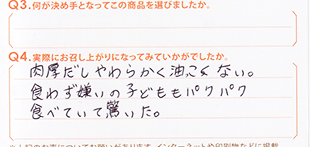 Q3.何が決め手となってこの商品を選びましたか。
Q4.実際にお召し上がりになってみていかがでしたか。
肉厚だしやわらかく油こくない。
食わず嫌いの子どももパクパク
食べていて驚いた。